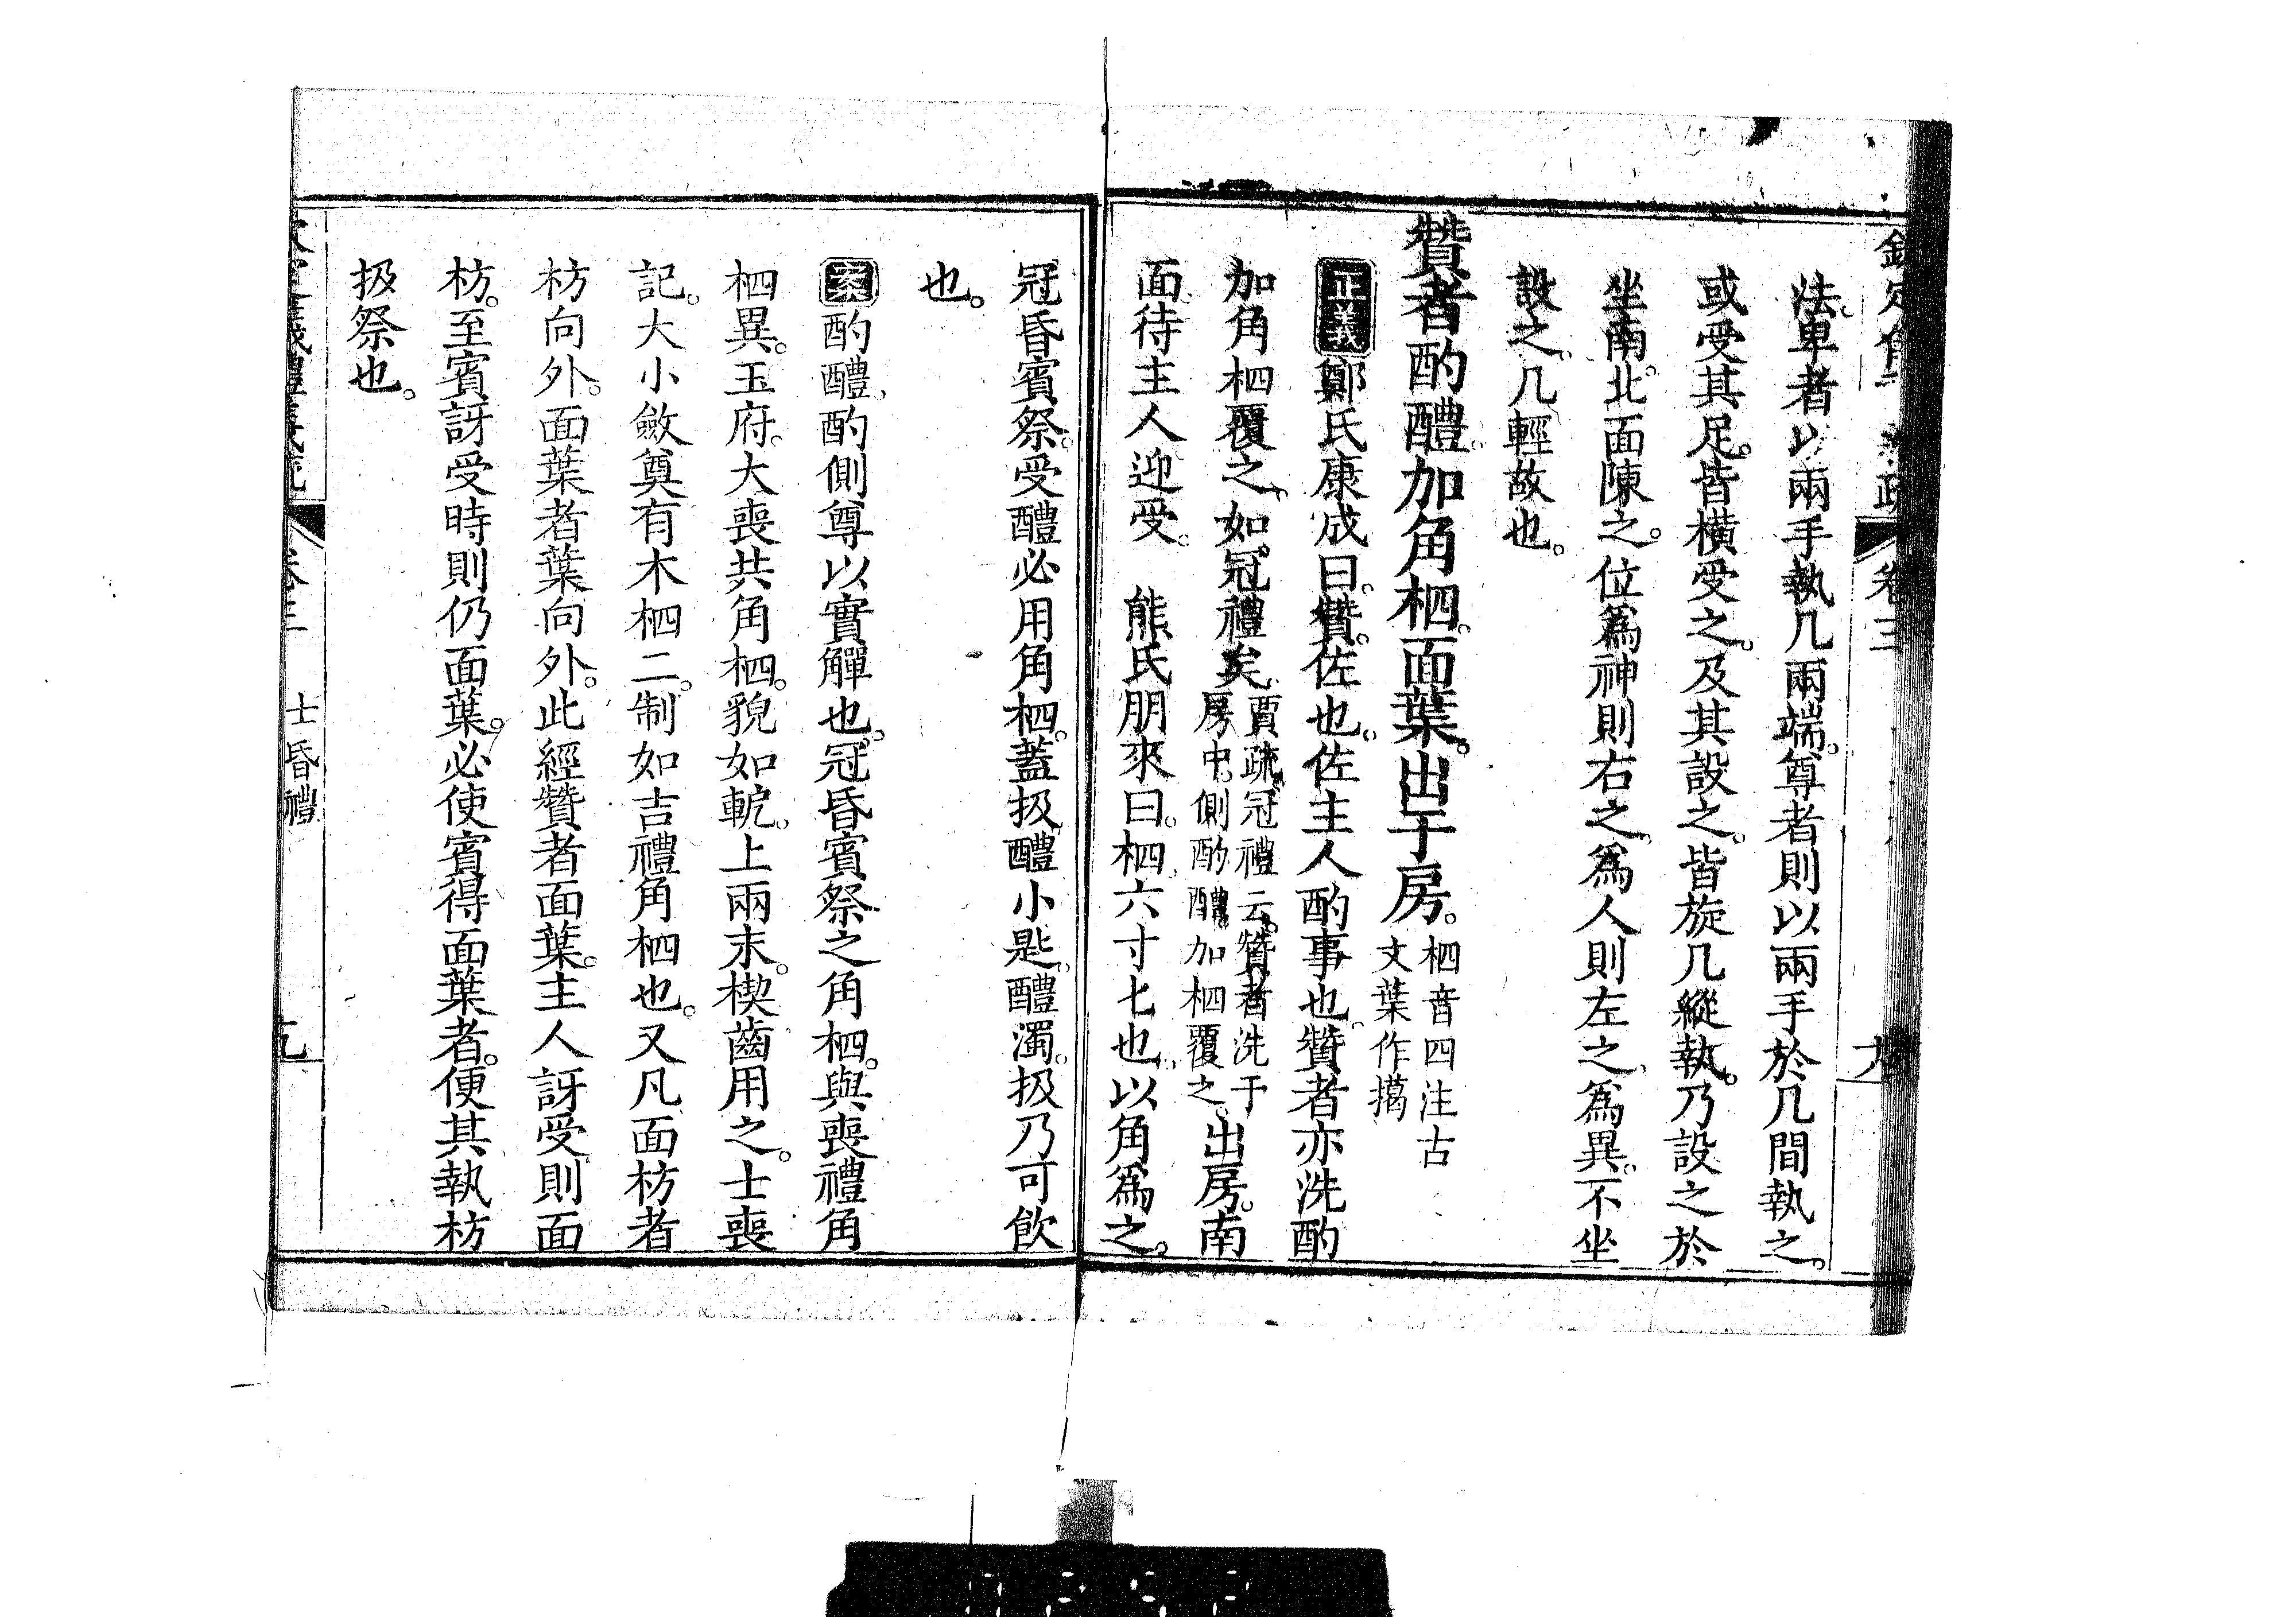 法卑者以兩手執几兩端尊者則以兩手於几間執之
或受其足皆橫受之及其設之皆旋几縱執乃設之於
坐南北面陳之位爲神則右之爲人則左之爲異不坐
設之几輕故也
贊者酌醴加角柶面葉出于房
柶音四注古
文葉作擖
正義鄭氏康成曰贊佐也佐主人酌事也贊者亦洗酌
加角柶覆之如冠禮矣
賈疏冠禮云贊者洗于
房中側酌醴加柶覆之
出房南
面待主人迎受 熊氏朋來曰柶六寸七也以角爲之
冠昏賓祭受醴必用角柶蓋扱醴小匙醴濁扱乃可飲
也
案酌醴酌側尊以實觶也冠昏賓祭之角柶與喪禮角
柶異玉府大喪共角柶貌如軶上兩末楔齒用之士喪
記大小斂奠有木柶二制如吉禮角柶也又凡面枋者
枋向外面葉者葉向外此經贊者面葉主人訝受則面
枋至賓訝受時則仍面葉必使賓得面葉者便其執枋
扱祭也
卷三 士昏禮